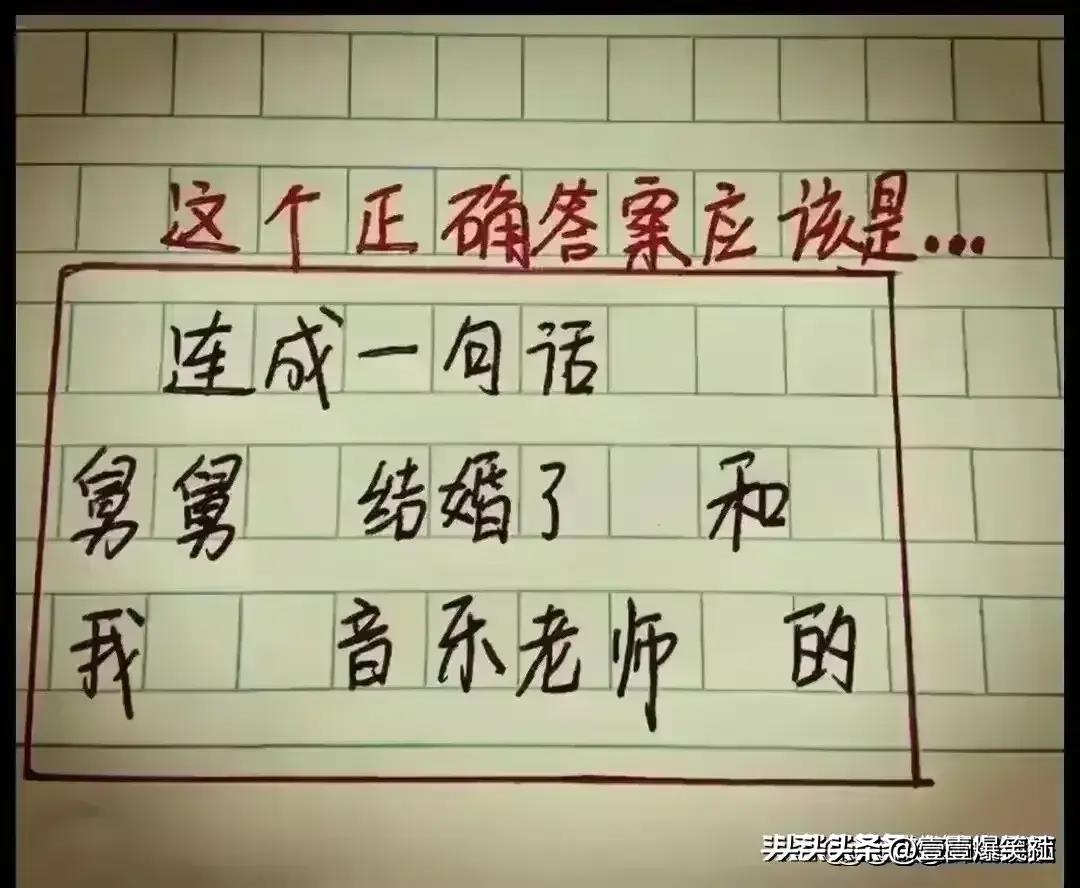 这个正确答案应该是...
连成一句话
舅舅 结婚了 和
我 音乐老师 的
头条@壹壹爆笑社